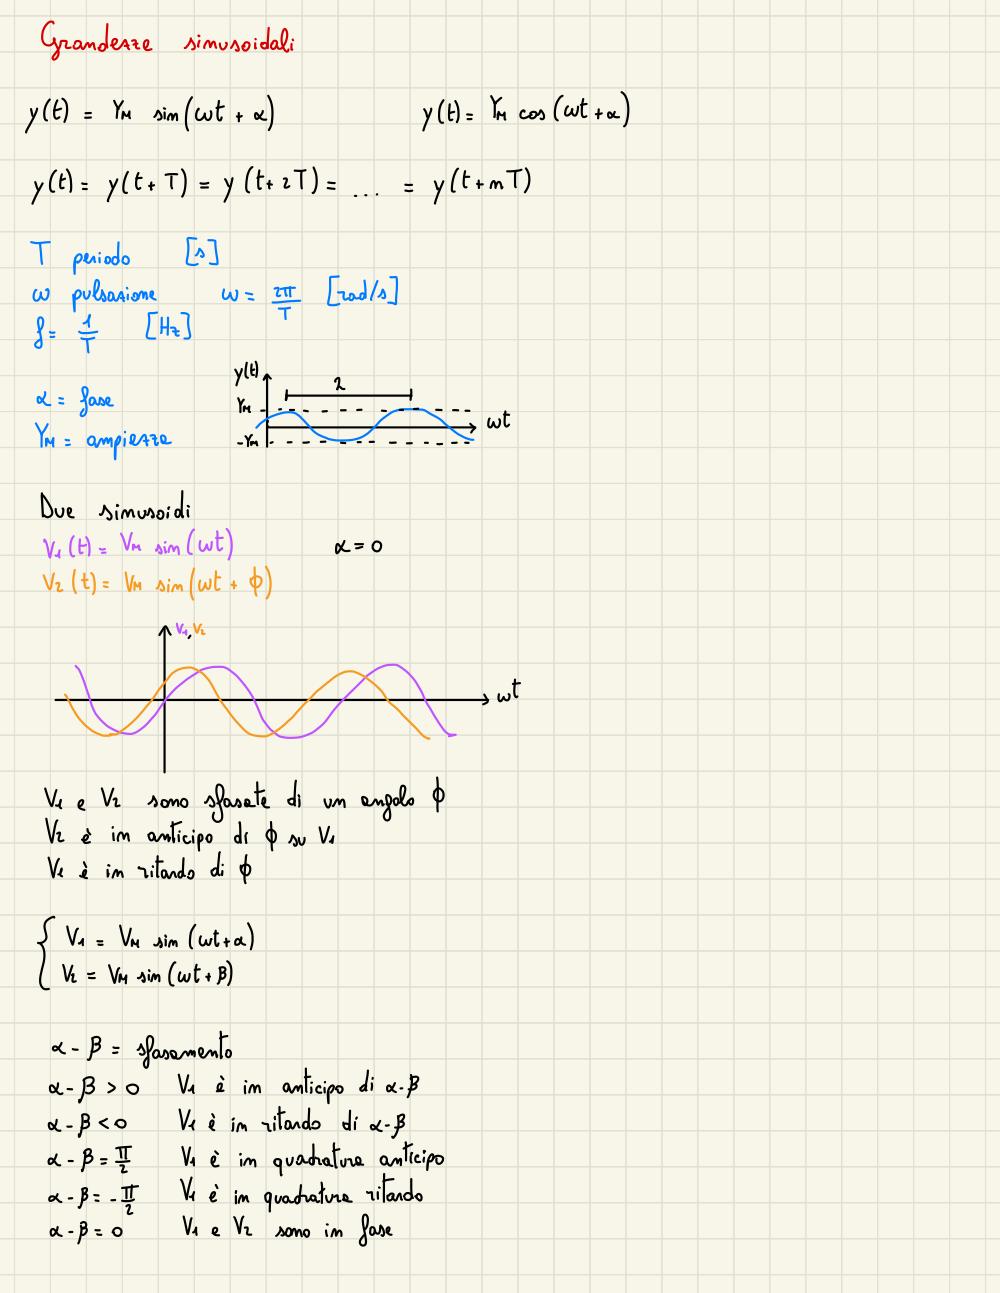 Grandezze sinusoidali
y(t) = Y_M sin(ωt + α) y(t) = Y_M cos(ωt + α)
y(t) = y(t + T) = y(t + 2T) = ... = y(t + nT)
T periodo [s]
ω pulsazione ω = 2π/T [rad/s]
f = 1/T [Hz]
y(t)
2
α = fase
Y_M
ωt
Y_M = ampiezza
-Y_M
Due sinusoidi
V₁(t) = V_M sin(ωt) α = 0
V₂(t) = V_M sin(ωt + ϕ)
V₁, V₂
ωt
V₁ e V₂ sono sfasate di un angolo ϕ
V₂ è in anticipo di ϕ su V₁
V₁ è in ritardo di ϕ
{ V₁ = V_M sin(ωt + α)
V₂ = V_M sin(ωt + β)
α - β = sfasamento
α - β > 0 V₁ è in anticipo di α - β
α - β < 0 V₁ è in ritardo di α - β
α - β = π/2 V₁ è in quadratura anticipo
α - β = - π/2 V₁ è in quadratura ritardo
α - β = 0 V₁ e V₂ sono in fase